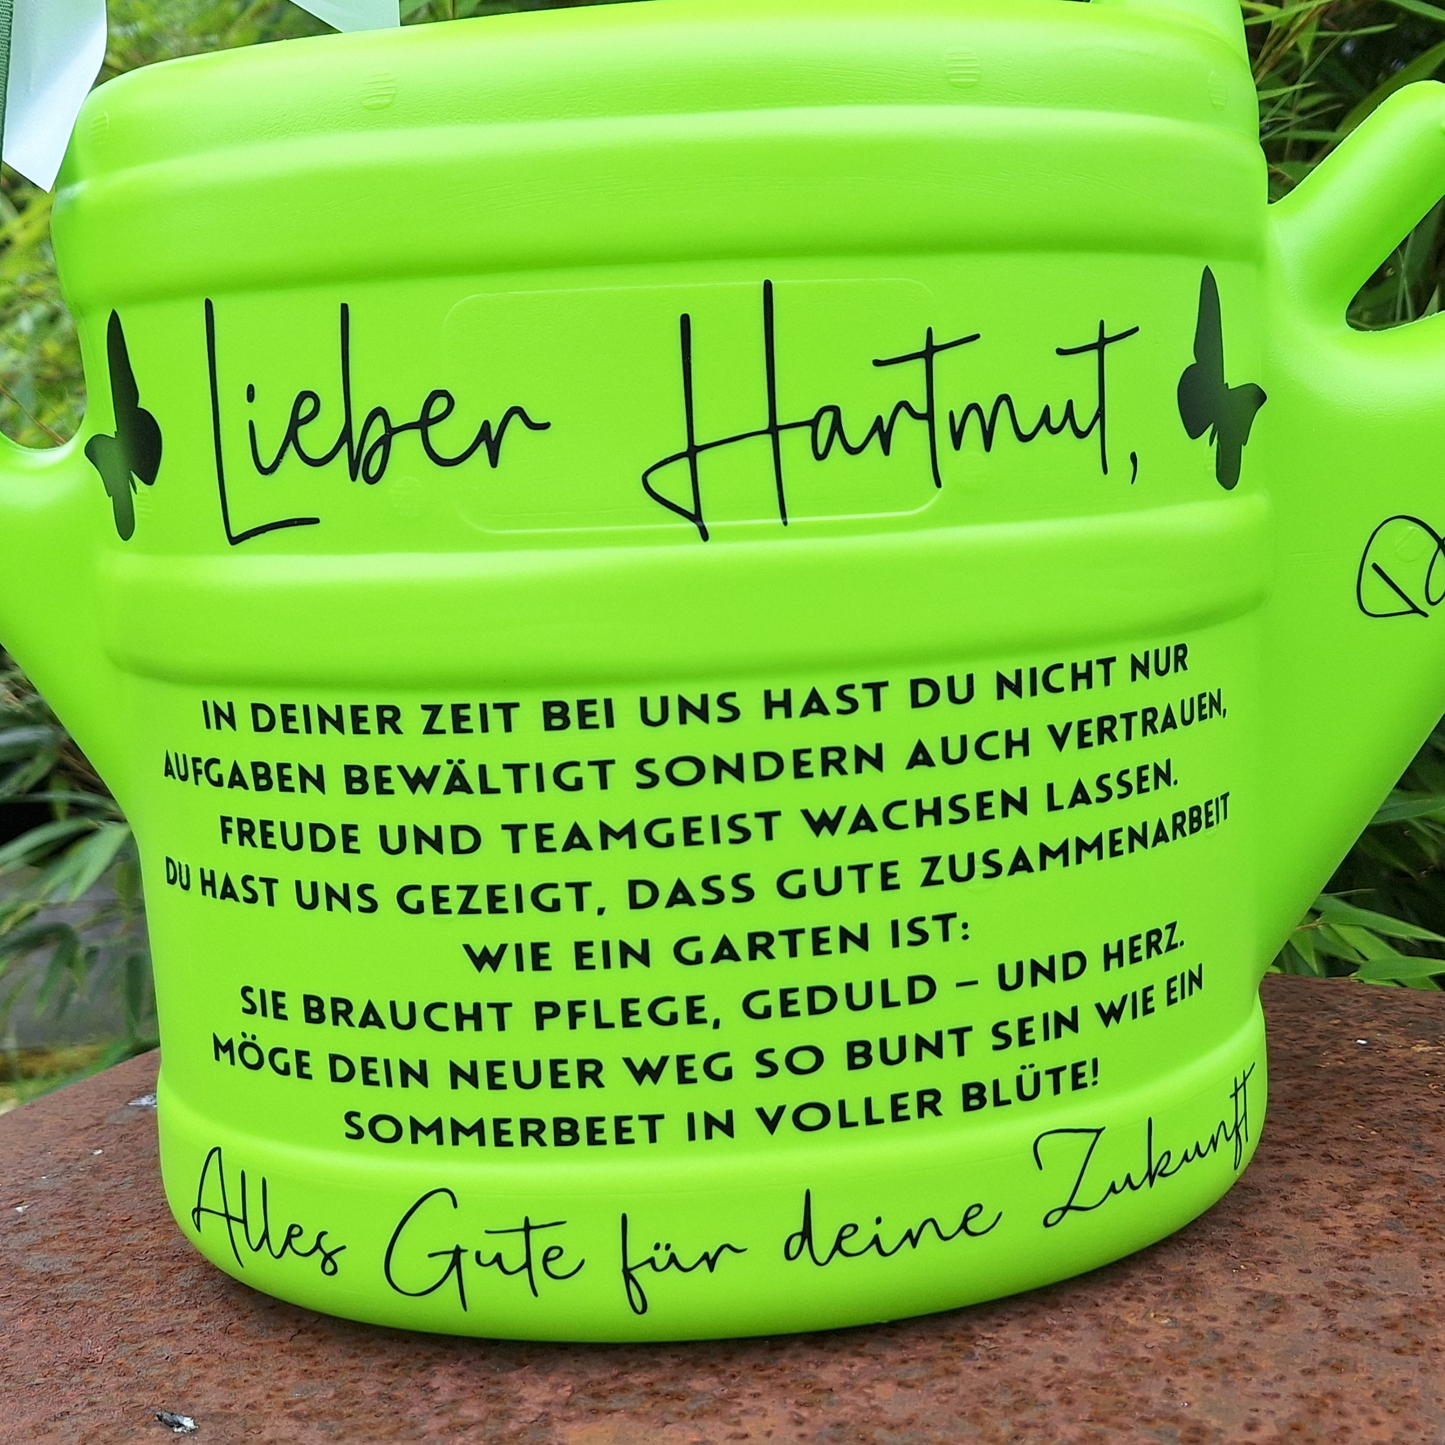 Lieber Hartmut,
IN DEINER ZEIT BEI UNS HAST DU NICHT NUR
AUFGABEN BEWÄLTIGT SONDERN AUCH VERTRAUEN,
FREUDE UND TEAMGEIST WACHSEN LASSEN.
DU HAST UNS GEZEIGT, DASS GUTE ZUSAMMENARBEIT
WIE EIN GARTEN IST:
SIE BRAUCHT PFLEGE, GEDULD – UND HERZ.
MÖGE DEIN NEUER WEG SO BUNT SEIN WIE EIN
SOMMERBEET IN VOLLER BLÜTE!
Alles Gute für deine Zukunft